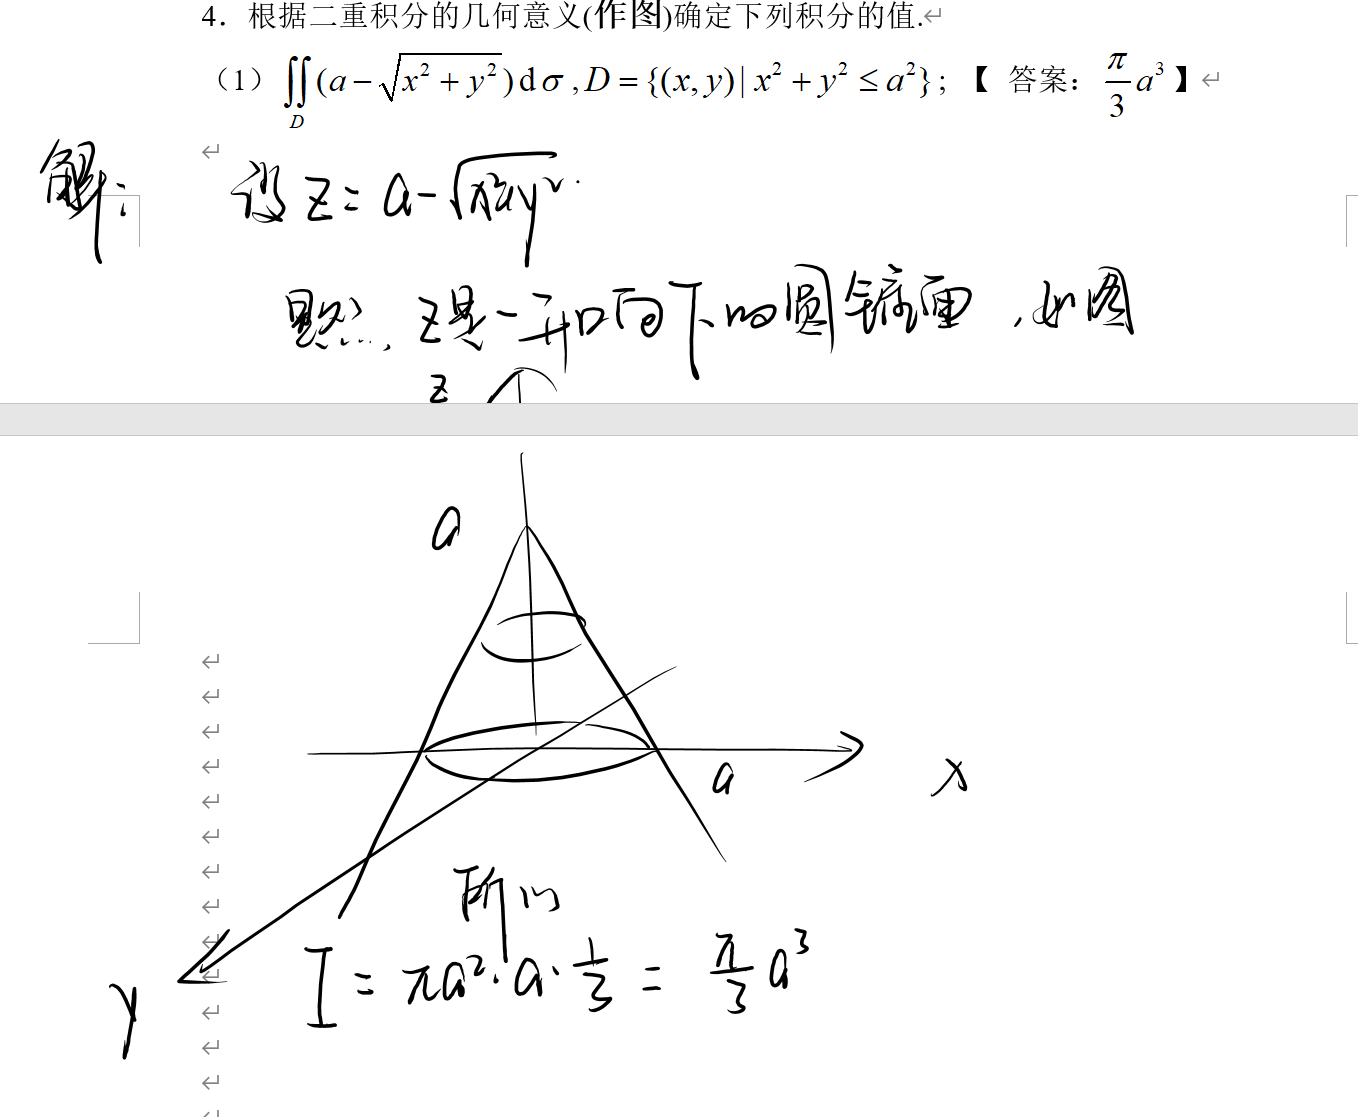 4. 根据二重积分的几何意义(作图)确定下列积分的值.
(1) ∬_D (a − √(x² + y²)) dσ , D = {(x, y) | x² + y² ≤ a²} ; 【 答案： π/3 a³ 】
解： 设 z = a − √(x²+y²) .
显然, z是一开口向下的圆锥面 , 如图
z
a
a
x
所以
I = πa² · a · 1/3 = π/3 a³
y